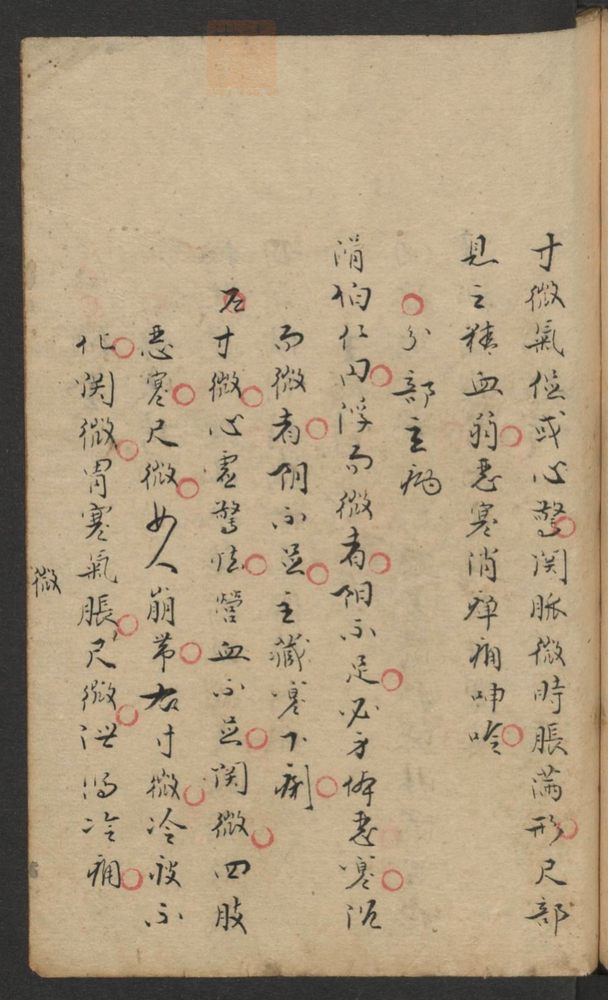 寸微氣促或心驚関脈微時脹滿形尺部
見之精血弱惡寒消癉痛呻吟
分部主病
滑伯仁曰浮而微者陽不足必身體惡寒沉
而微者陰不足主臟寒下痢
左寸微心虛驚怯營血不足関微四肢
惡寒尺微女人崩帶右寸微冷痰不
化関微胃寒氣脹尺微泄瀉冷痛
微